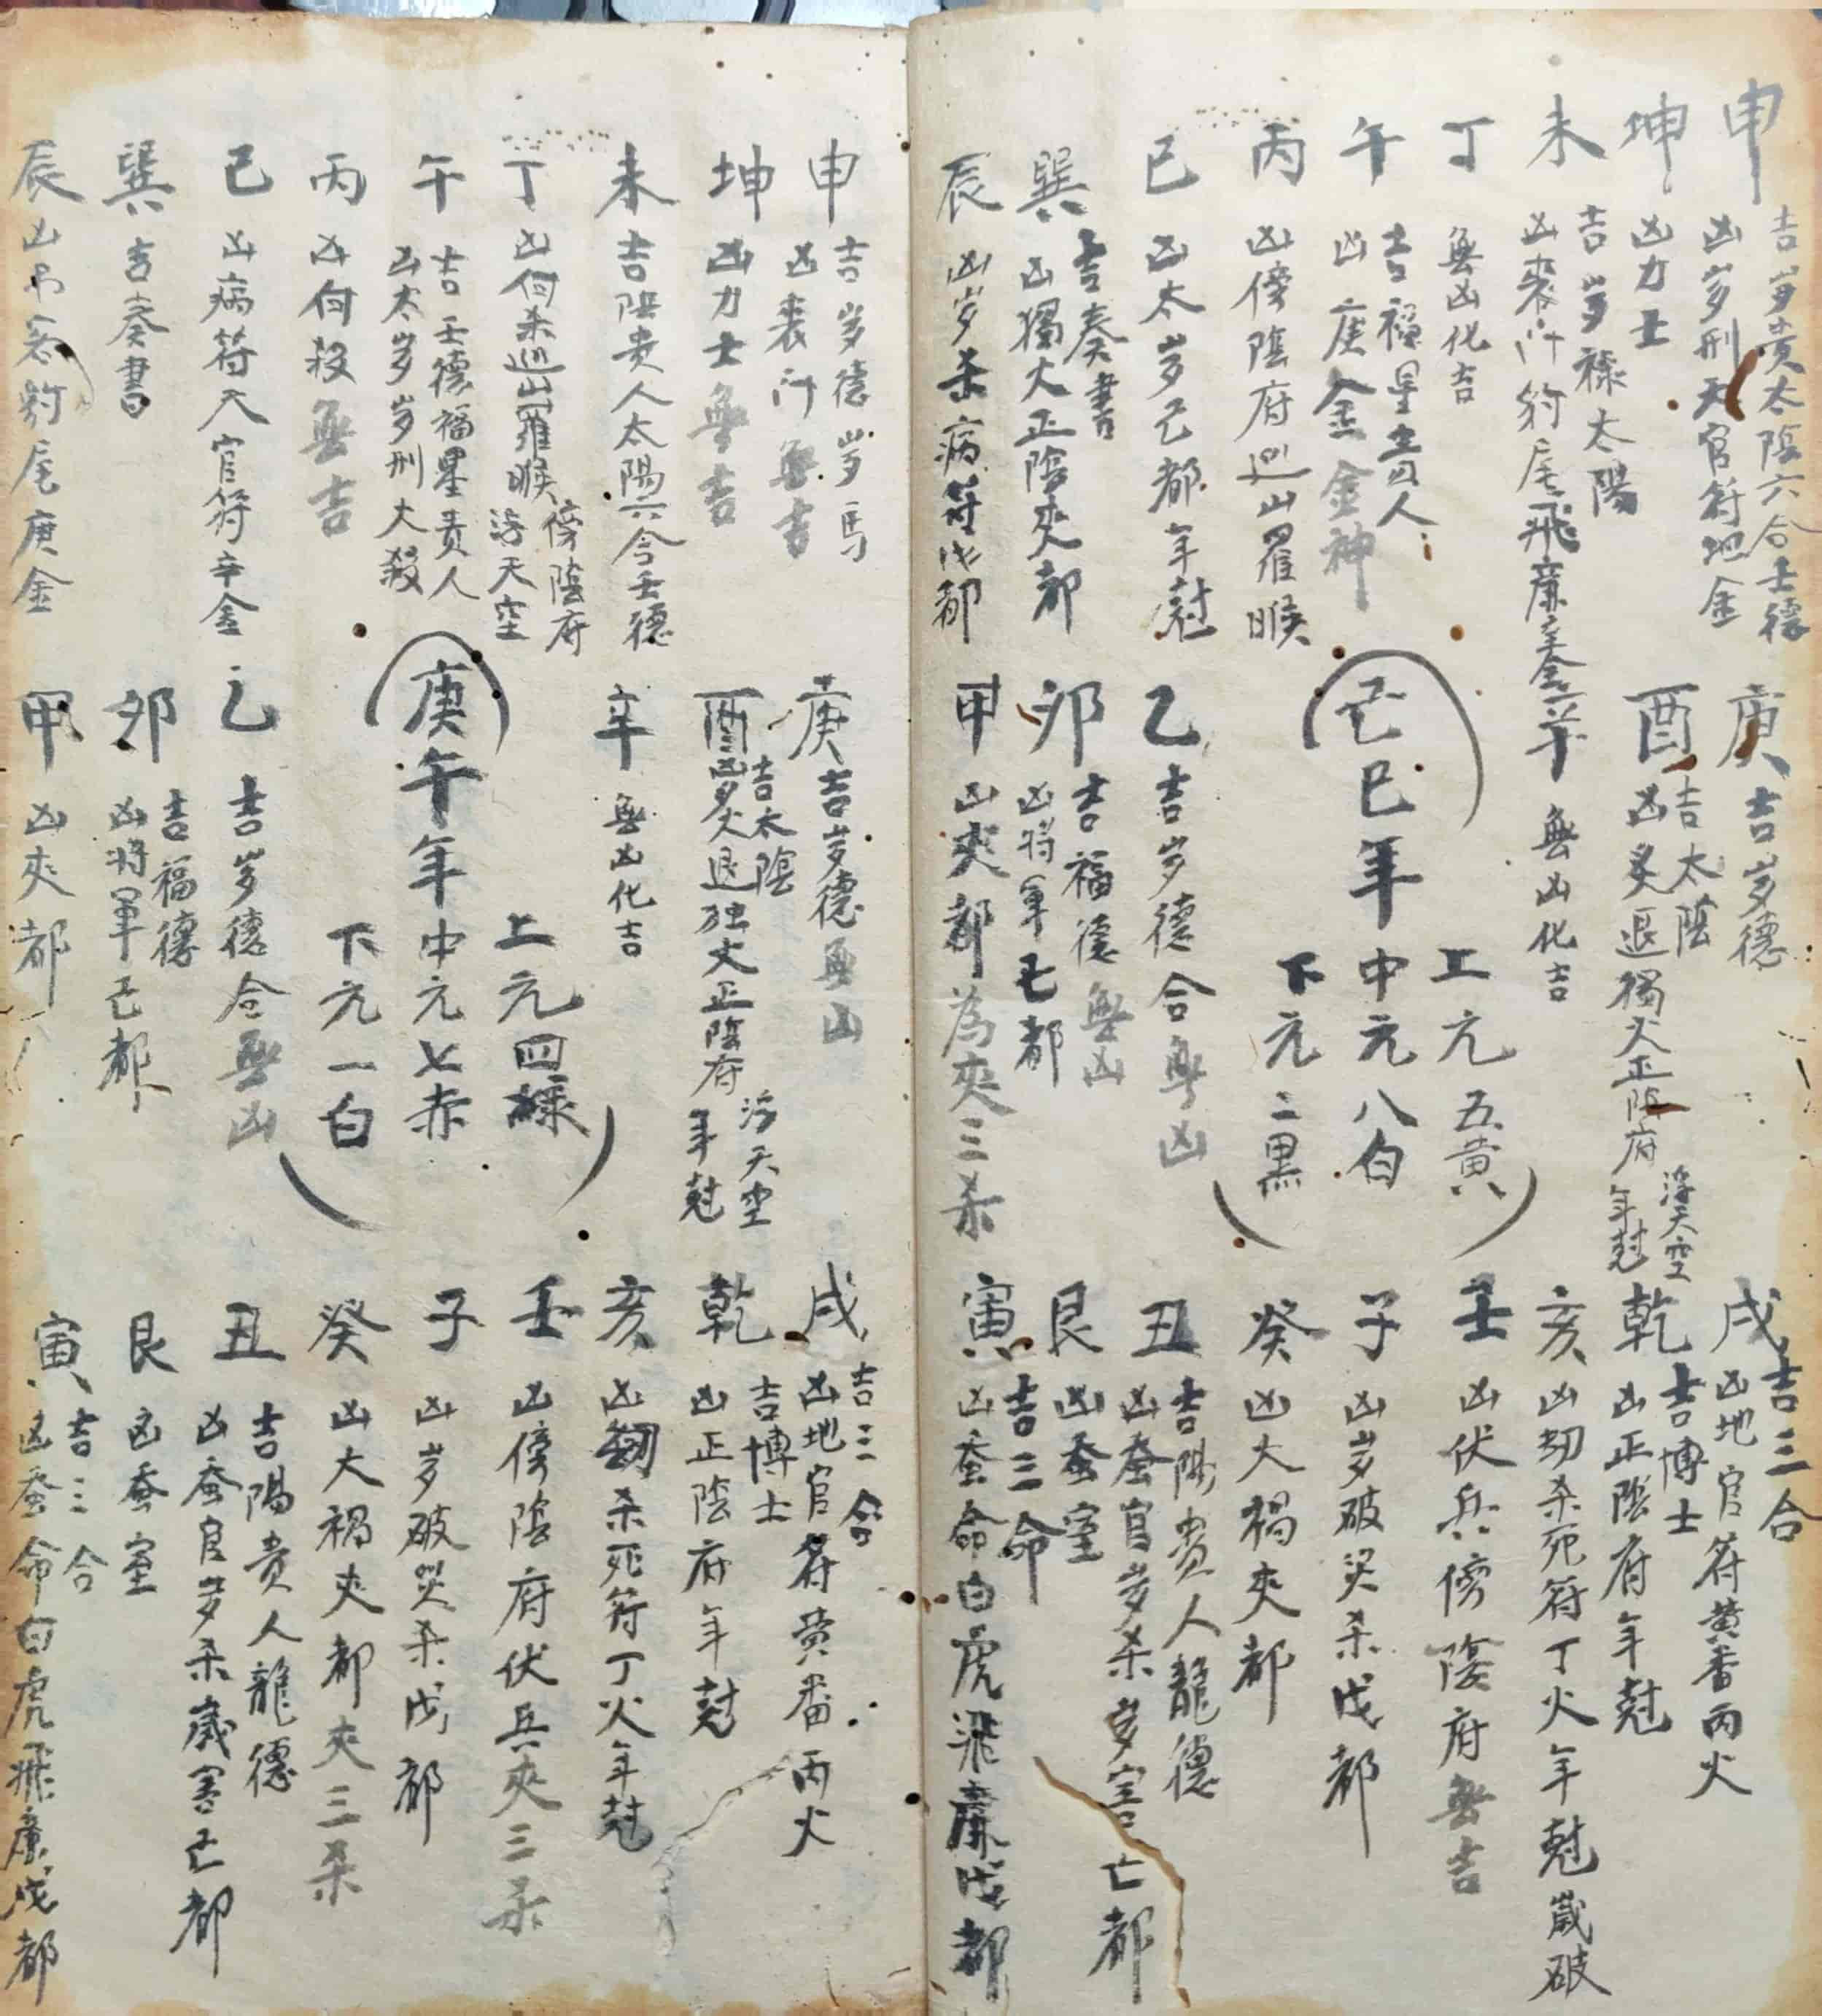 申
吉岁贵太陰六合壬德
凶岁刑天官符地金
坤
凶力士
未
吉岁祿太陽
凶喪门豹尾飛廉
丁
無凶化吉
午
吉福星貴人
凶庚金金神
丙
凶傍陰府巡山羅睺
巳
凶太岁己都年尅
巽
吉奏書
凶獨火正陰夾都
辰
凶岁杀病符戊都
庚
吉岁德
酉
吉太陰
凶炙退獨火正陰府
浮天空
年尅
辛
無凶化吉
己巳年
上元五黄
中元八白
下元二黑
乙
吉岁德合無凶
卯
吉福德無凶
凶将軍己都
甲
凶夾都為夾三杀
戌
吉三合
凶地官符黄番丙火
乾
吉博士
凶正陰府年尅
亥
凶刼杀死符丁火年尅歲破
壬
凶伏兵傍陰府無吉
子
凶岁破災杀戊都
癸
凶大禍夾都
丑
吉陽貴人龍德
凶蚕官岁杀岁害亡都
艮
凶蚕室
寅
吉三命
凶蚕命白虎飛廉戊都
申
吉岁德岁马
凶喪门無吉
坤
凶力士無吉
未
吉陰贵人太陽六合壬德
丁
凶向杀巡山羅睺
傍陰府
浮天空
午
吉壬德福星贵人
凶太岁岁刑大殺
丙
凶向殺無吉
己
凶病符天官符辛金
巽
吉奏書
辰
凶吊客豹尾庚金
庚
吉岁德無凶
酉
吉太陰
凶炙退独火正陰府
浮天空
年尅
辛
無凶化吉
庚午年
上元四綠
中元七赤
下元一白
乙
吉岁德合無凶
卯
吉福德
凶将軍己都
甲
凶夾都
戌
吉三合
凶地官符黄番丙火
乾
吉博士
凶正陰府年尅
亥
凶刼杀死符丁火年尅
壬
凶傍陰府伏兵夾三杀
子
凶岁破災杀戊都
癸
凶大禍夾都夾三杀
丑
吉陽贵人龍德
凶蚕官岁杀歲害亡都
艮
凶蚕室
寅
吉三合
凶蚕命白虎飛廉戊都